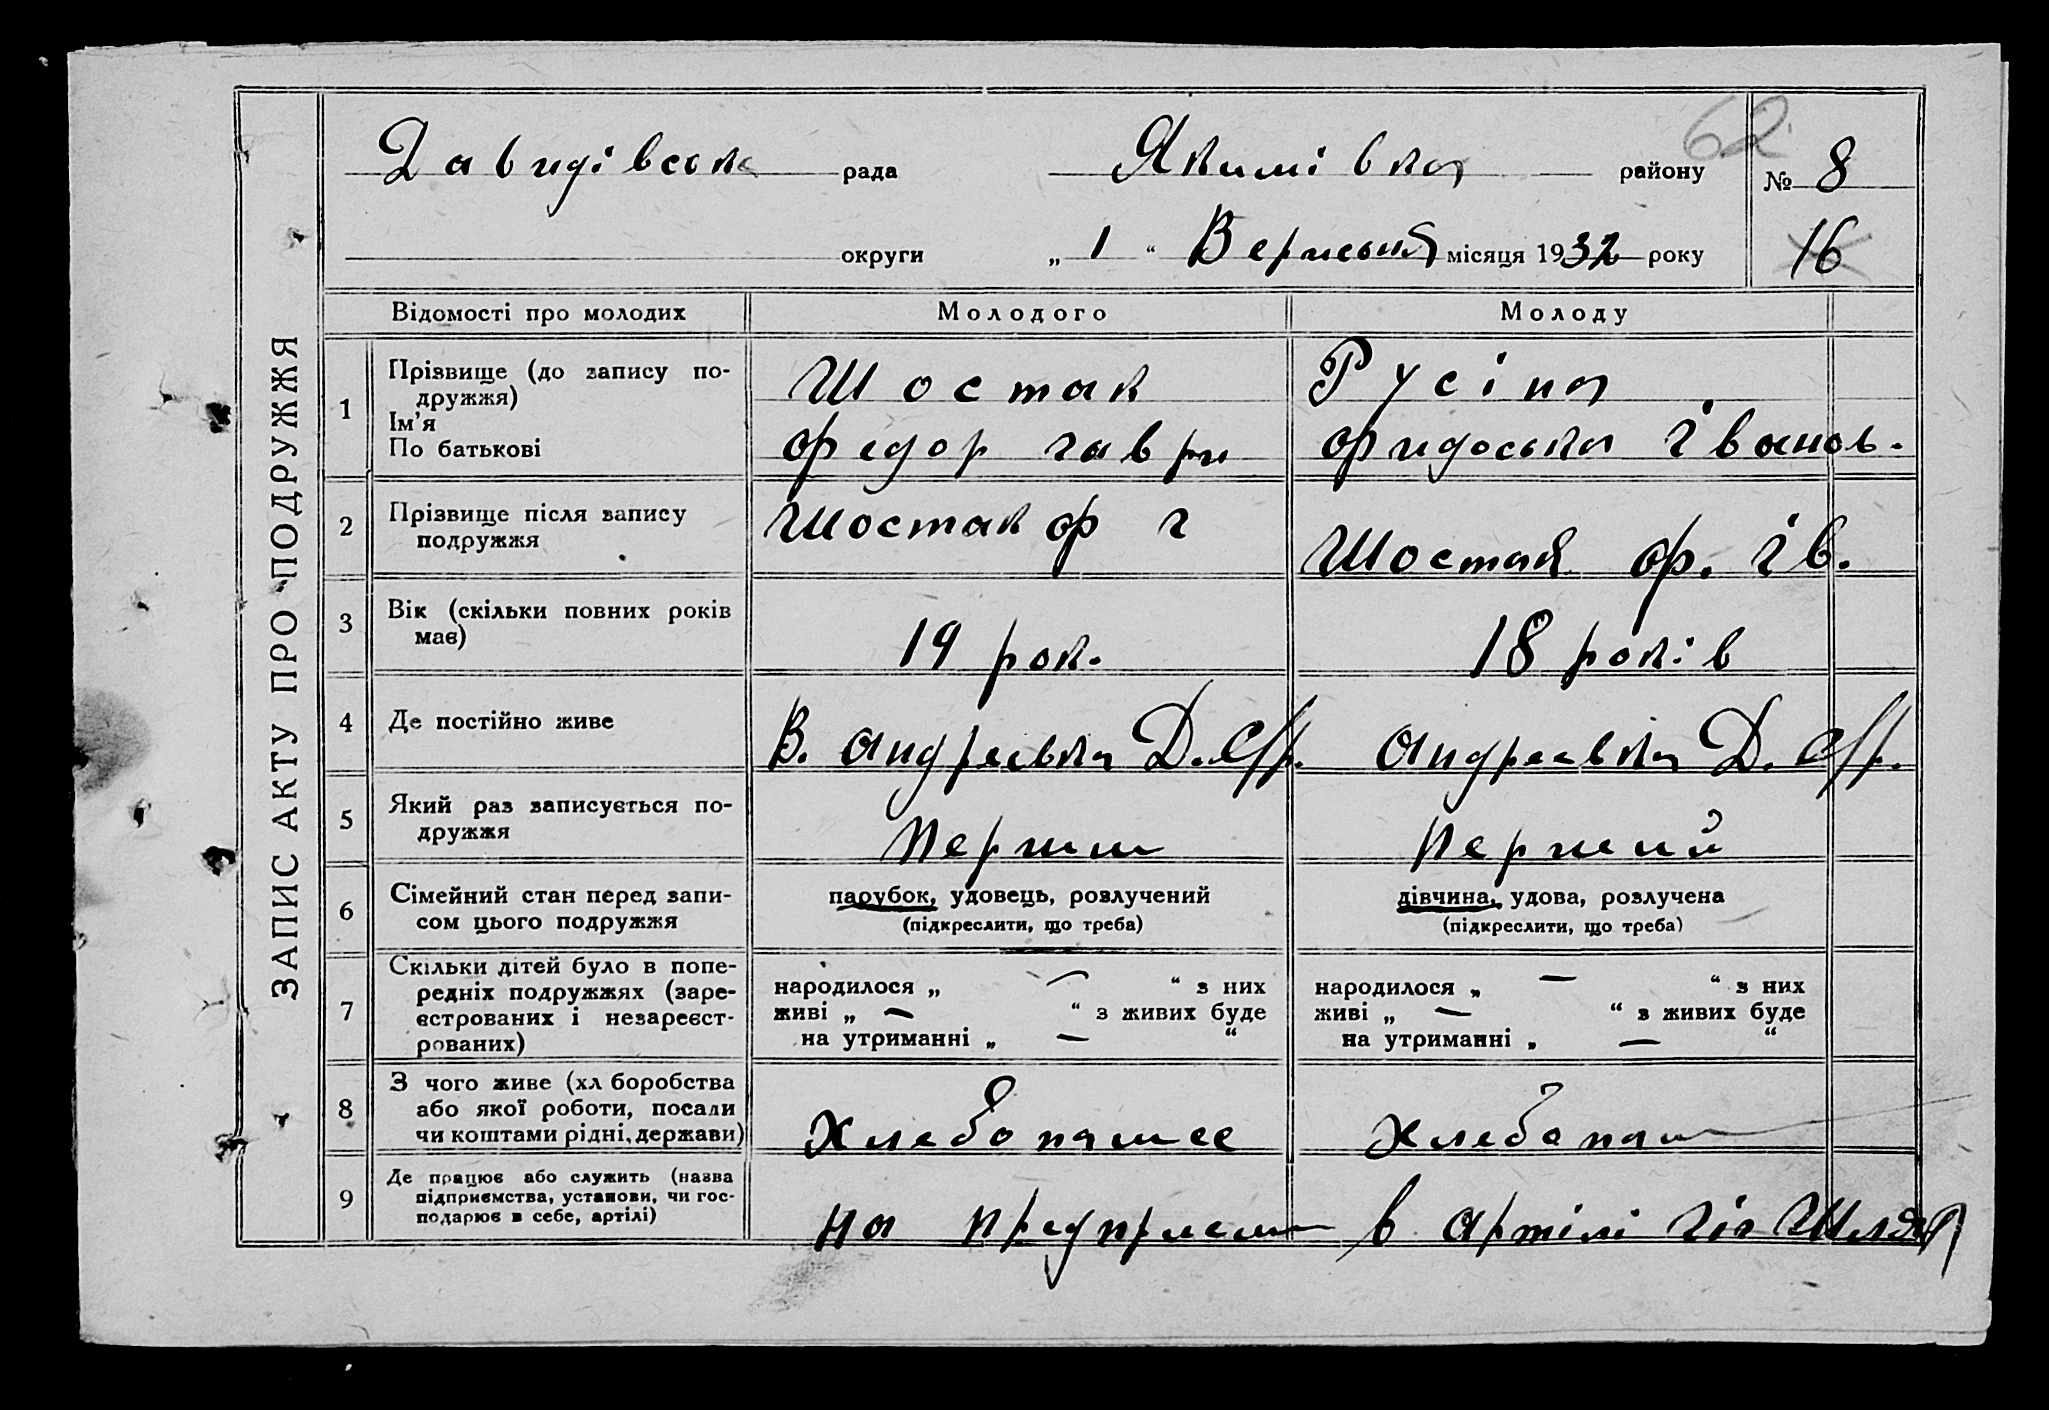 62
Давидівська рада Якимівка району № 8
округи „ 1 “ Верисьня місяця 1932 року 16
ЗАПИС АКТУ ПРО ПОДРУЖЖЯ
Відомості про молодих Молодого Молоду
1 Прізвище (до запису по-
дружжя)
Ім’я
По батькові
Шостак
федор гаври
Русіна
фидоська Іванов.
2 Прізвище після запису
подружжя
Шостак ф г
Шостак ф. Ів.
3 Вік (скільки повних років
має)
19 рок.
18 років
4 Де постійно живе
В. андреевка Д. С/р.
андреевка Д. С/р.
5 Який раз записується по-
дружжя
Перший
Перший
6 Сімейний стан перед запи-
сом цього подружжя
парубок, удовець, розлучений
(підкреслити, що треба)
дівчина, удова, розлучена
(підкреслити, що треба)
7 Скільки дітей було в попе-
редніх подружжях (заре-
єстрованих і незареєст-
рованих)
народилося „ — “ з них
живі „ — “ з живих буде
на утриманні „ — “
народилося „ — “ з них
живі „ — “ з живих буде
на утриманні „ — “
8 З чого живе (хл боробства
або якої роботи, посади
чи коштами рідні, держави)
хлебопашес
хлебопаш
9 Де працює або служить (назва
підприємства, установи, чи гос-
подарює в себе, артілі)
на предприем
в артілі